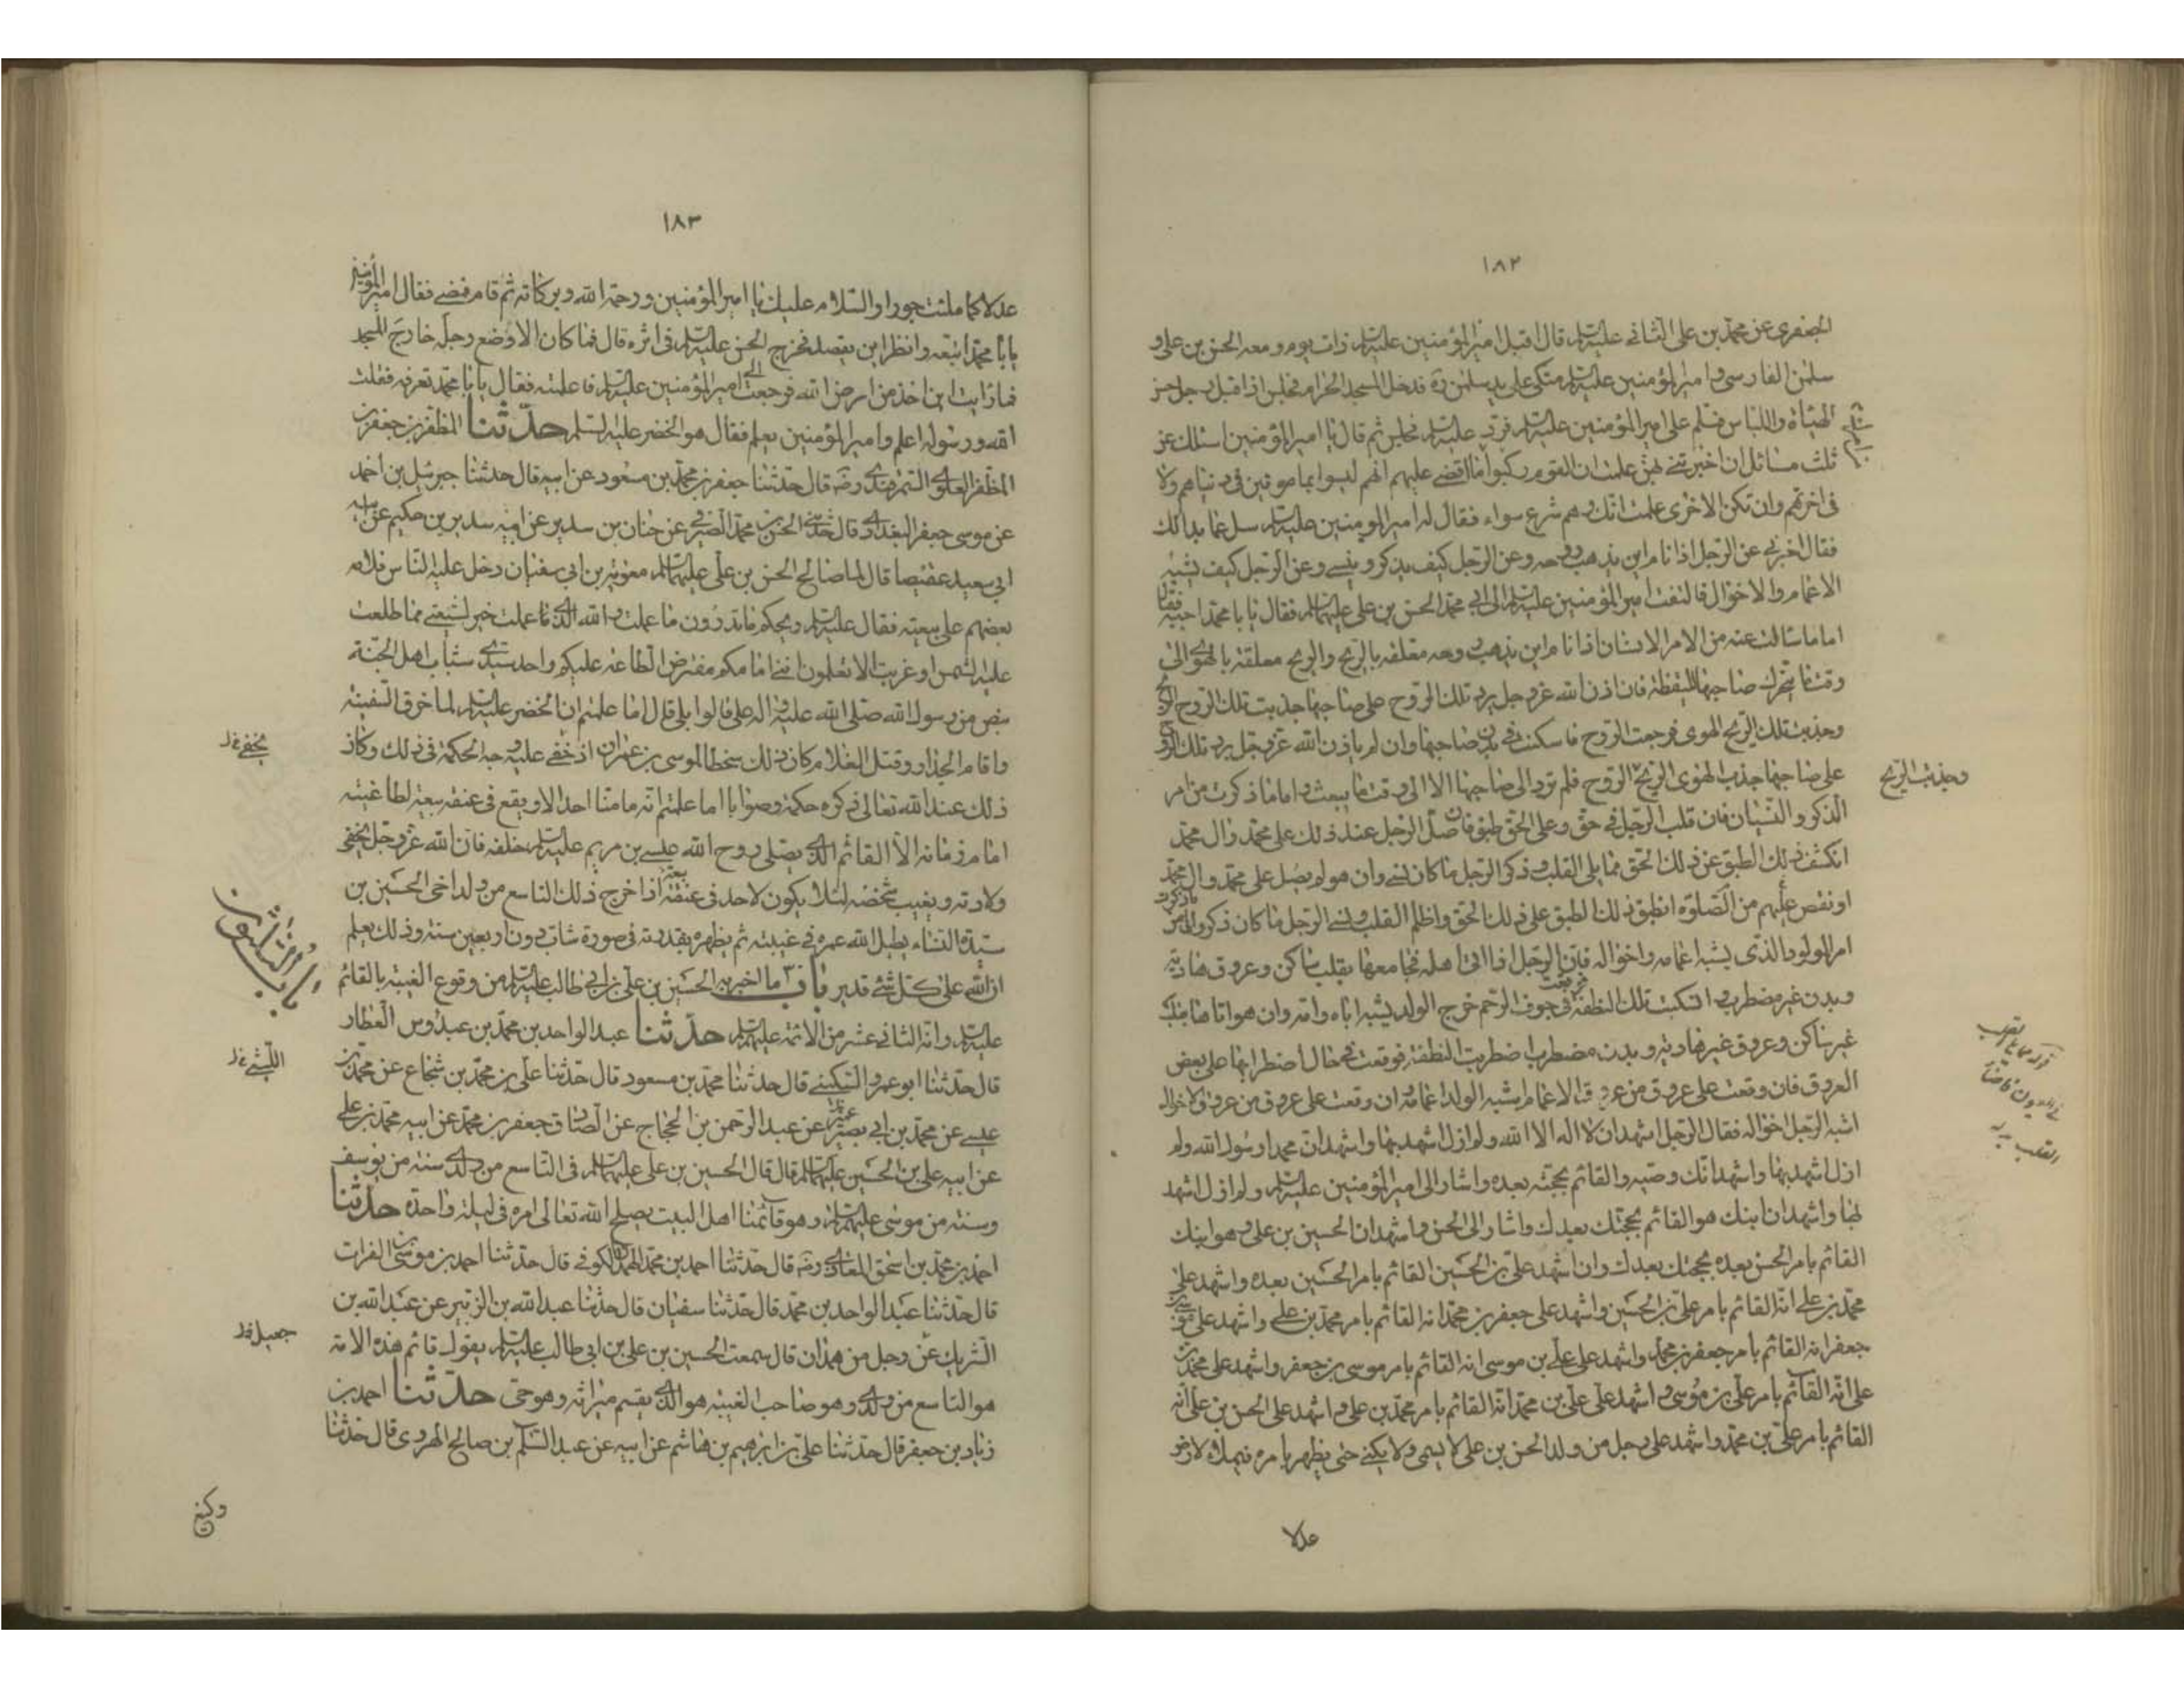 ١٨٢
الجعفرى عن محمد بن على الثانى عليه السلام قال اقبل امير المؤمنين عليه السلام ذات يوم ومعه الحسن بن على و
سلمن الفارسى و امير المؤمنين عليه السلام متكى على يد سلمن ره فدخل المسجد الحرام فجلس اذا اقبل رجل حسن
الهيأة واللباس فسلم على امير المؤمنين عليه السلام فرد عليه السلام فجلس ثم قال يا امير المؤمنين اسئلك عن
ثلث مسائل ان اخبرتنى بهن علمت ان القوم ركبوا ما اقضى عليهم انهم ليسوا بمامونين فى دنياهم ولا
فى اخرتهم وان تكن الاخرى علمت انك وهم شرع سواء فقال له امير المومنين عليه السلام سل عما بدالك
فقال اخبرنى عن الرجل اذا نام اين يذهب روحه وعن الرجل كيف يذكر وينسى وعن الرجل كيف يشبه
الاعمام والاخوال فالتفت امير المؤمنين عليه السلام الى ابى محمد الحسن بن على عليهما السلام فقال يا با محمد اجبه فقال
اما ما سالت عنه من الامر الانسان اذا نام اين يذهب روحه معلقة بالريح والريح معلقة بالهوى الى
وقت ما يتحرك صاحبها لليقظة فان اذن الله عز وجل برد تلك الروح على صاحبها جذبت تلك الروح الريح
وجذبت تلك الريح الهوى فرجعت الروح فاسكنت فى بدن صاحبها وان لم ياذن الله عز وجل برد تلك الروح
على صاحبها جذب الهوى الريح الروح فلم ترد الى صاحبها الا الى وقت ما يبعث واما ما ذكرت من امر
وجذبت الريح
الذكر والنسيان فان قلب الرجل فى حق وعلى الحق طبق فان صلى الرجل عند ذلك على محمد وال محمد
انكشف ذلك الطبق عن ذلك الحق مما يلى القلب و ذكر الرجل ما كان نسى وان هو لم يصل على محمد وال محمد
او نقص عليهم من الصلوة انطبق ذلك الطبق على ذلك الحق واظلم القلب ونسى الرجل ما كان ذكر واما ما ذكرت من
امر المولود الذى يشبه اعمامه واخواله فان الرجل اذا اتى اهله فجامعها بقلب ساكن وعروق هادية
وبدن غير مضطرب اسكبت تلك النطفة فى جوف الرحم خرج الولد يشبه اباه وامه وان هو اتاها بقلب
غير ساكن وعروق غير هادية وبدن مضطرب اضطربت النطفة فوقعت فى حال اضطرابها على بعض
العروق فان وقعت على عروق من عروق الاعمام اشبه الولد اعمامه وان وقعت على عروق من عروق الاخوال
اشبه الرجل اخواله فقال الرجل اشهد ان لا اله الا الله ولم ازل اشهد بها واشهد ان محمدا رسول الله ولم
ازل اشهد بها واشهد انك وصيه والقائم بحجته بعده واشار الى امير المؤمنين عليه السلام ولم ازل اشهد
بها واشهد ان ابنك هو القائم بحجتك بعدك واشار الى الحسن واشهد ان الحسين بن على و هو ابنك
القائم بامر الحسن بعده بحجتك بعدك وان اشهد على بن الحسين القائم بامر الحسين بعده واشهد على
محمد بن على انه القائم بامر على بن الحسين واشهد على جعفر بن محمد انه القائم بامر محمد بن على واشهد على موسى بن
جعفر انه القائم بامر جعفر بن محمد واشهد على على بن موسى انه القائم بامر موسى بن جعفر واشهد على محمد بن
على انه القائم بامر على بن موسى و اشهد على على بن محمد انه القائم بامر محمد بن على و اشهد على الحسن بن على انه
القائم بامر على بن محمد واشهد على رجل من ولد الحسن بن على لا يسمى ولا يكنى حتى يظهر بامره فيملأ الارض
عدلا
١٨٣
عدلا كما ملئت جورا والسلام عليك يا امير المؤمنين ورحمة الله وبركاته ثم قام فمضى فقال امير المؤمنين
يا با محمد اتبعه وانظر اين يقصد فخرج الحسن عليه السلام فى اثره قال فما كان الا وضع رجله خارج المسجد
فما رايت اين اخذ من ارض الله فرجعت الى امير المؤمنين عليه السلام فاعلمته فقال يا با محمد تعرفه فقلت
الله ورسوله اعلم وامير المؤمنين يعلم فقال هو الخضر عليه السلم حدثنا المظفر بن جعفر بن
المظفر العلوى السمرقندى رضه قال حدثنا جعفر بن محمد بن مسعود عن ابيه قال حدثنا جبرئيل بن احمد
عن موسى جعفر البغدادى قال حدثنى الحسن بن محمد الصيرفى عن حنان بن سدير عن ابيه سدير بن حكيم عن ابيه
ابى سعيد عقيصا قال لما صالح الحسن بن على عليهما السلام معوية بن ابى سفيان دخل عليه الناس فلامه
بعضهم على بيعته فقال عليه السلام ويحكم ما تدرون ما عملت والله الذى ما عملت خير لشيعتى مما طلعت
عليه الشمس او غربت الا تعلمون اننى امامكم مفترض الطاعة عليكم واحد سيدى شباب اهل الجنة
بنص من رسول الله صلى الله عليه واله على قالوا بلى قال اما علمتم ان الخضر عليه السلام لما خرق السفينة
واقام الجدار وقتل الغلام كان ذلك سخطا لموسى بن عمران اذ خفى عليه وجه الحكمة فى ذلك وكان
يخفى خ ل
ذلك عند الله تعالى ذكره حكمة وصوابا اما علمتم انه ما منا احد الا ويقع فى عنقه بيعة لطاغية
امام زمانه الا القائم الذى يصلى روح الله عيسى بن مريم عليه السلام خلفه فان الله عز وجل يخفى
ولادته ويغيب شخصه لئلا يكون لاحد فى عنقه بيعة اذا خرج ذلك التاسع من ولد اخى الحسين بن
سيدة النساء يطيل الله عمره فى غيبته ثم يظهره بقدرته فى صورة شاب دون اربعين سنة وذلك ليعلم
ان الله على كل شئ قدير باب ٣٠ ما اخبر به الحسين بن على بن ابى طالب عليه السلام من وقوع الغيبة بالقائم
باب الثلثون
عليه السلام وانه الثانى عشر من الائمة عليهم السلام حدثنا عبد الواحد بن محمد بن عبدوس العطار
قال حدثنا ابو عمرو الليثى قال حدثنا محمد بن مسعود قال حدثنا على بن محمد بن شجاع عن محمد بن
الليثى خ ل
عيسى عن محمد بن ابى عمير عن عبد الرحمن بن الحجاج عن الصادق جعفر بن محمد عن ابيه محمد بن على
عن ابيه على بن الحسين عليهما السلام قال قال الحسين بن على عليهما السلام فى التاسع من ولدى سنة من يوسف
وسنة من موسى عليهما السلام وهو قائمنا اهل البيت يصلح الله تعالى امره فى ليلة واحدة حدثنا
احمد بن محمد بن اسحق المعاذى رضه قال حدثنا احمد بن محمد الهمدانى الكوفى قال حدثنا احمد بن موسى بن الفرات
قال حدثنا عبد الواحد بن محمد قال حدثنا سفيان قال حدثنا عبد الله بن الزبير عن عبد الله بن
الشريك عن رجل من همدان قال سمعت الحسين بن على بن ابى طالب عليه السلام يقول قائم هذه الامة
هو التاسع من ولدى وهو صاحب الغيبة هو الذى يقسم ميراثه وهو حى حدثنا احمد بن
زياد بن جعفر قال حدثنا على بن ابراهيم بن هاشم عن ابيه عن عبد السلم بن صالح الهروى قال حدثنا